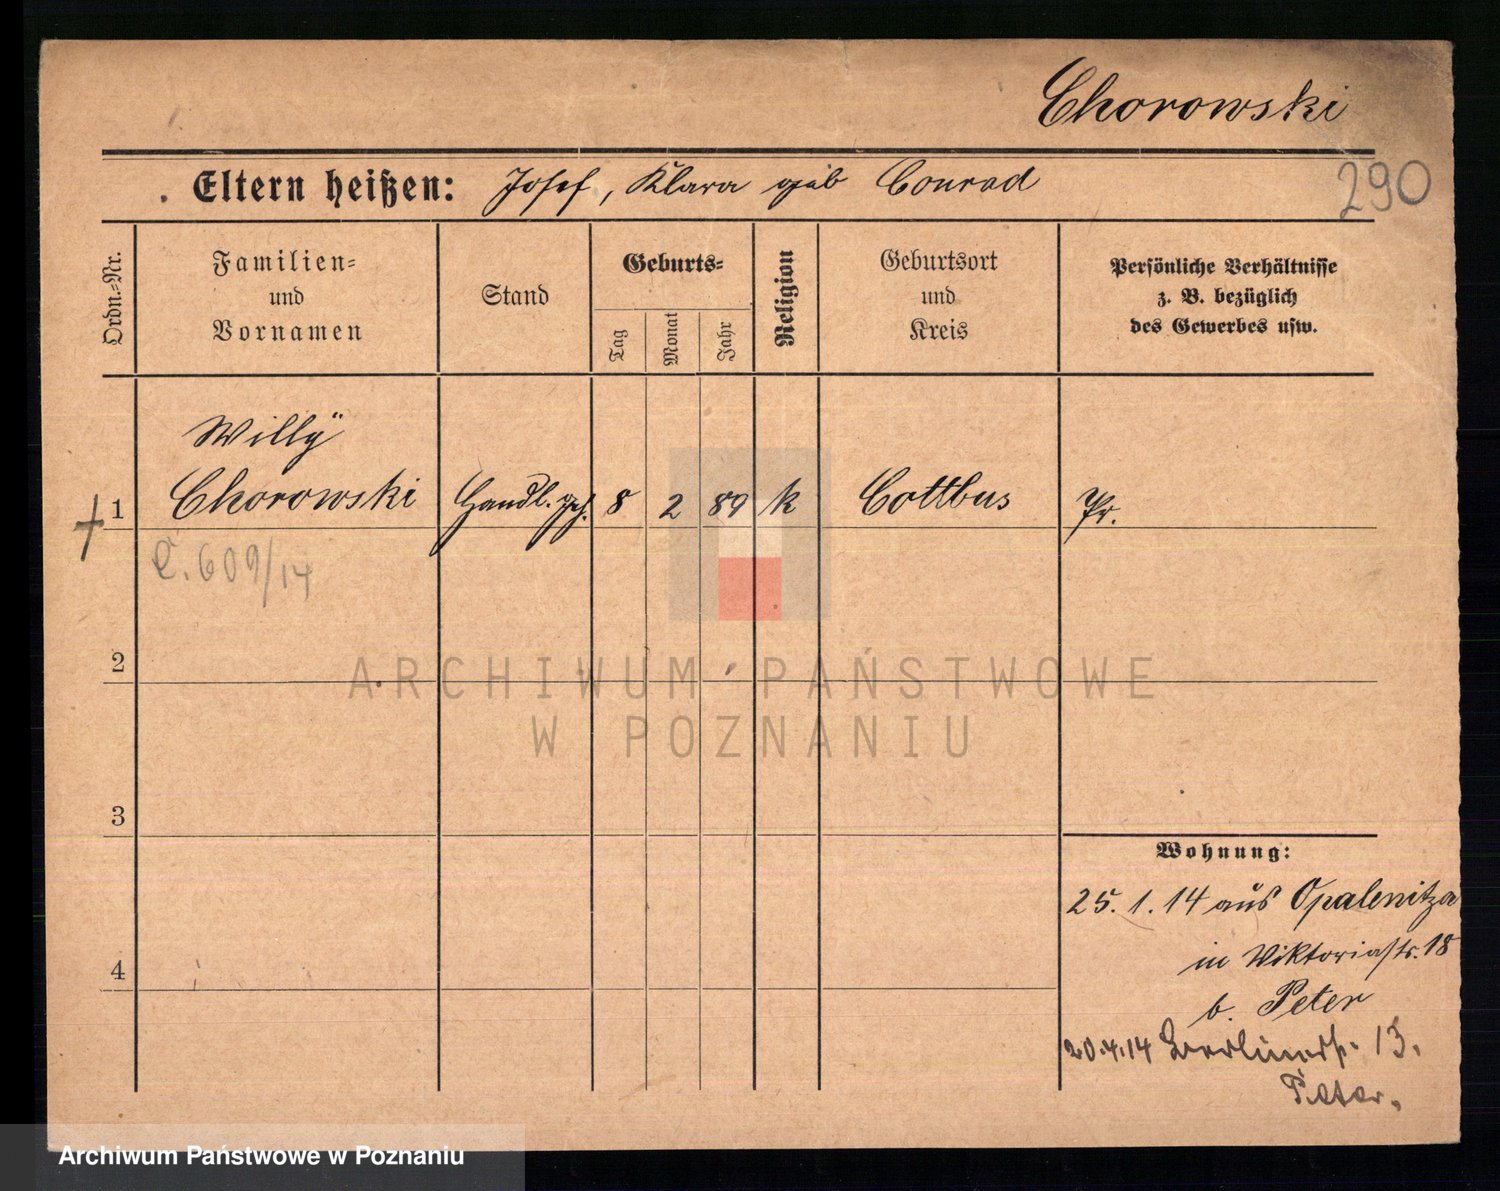 Chorowski
290
Eltern heißen: Josef, Klara geb Conrad
Ordn.-Nr.
Familien-
und
Vornamen
Stand
Geburts-
Tag
Monat
Jahr
Religion
Geburtsort
und
Kreis
Persönliche Verhältnisse
z. B. bezüglich
des Gewerbes usw.
Willÿ
1 Chorowski Handl. geh. 8 2 89 k Cottbus Pr.
C. 609/14
2
ARCHIWUM PAŃSTWOWE
W POZNANIU
3
Wohnung:
25. 1. 14 aus Opalenitza
4
in Viktoriastr. 18
b. Peter
20.4.14 Berlinerstr. 13.
Peter.
Archiwum Państwowe w Poznaniu